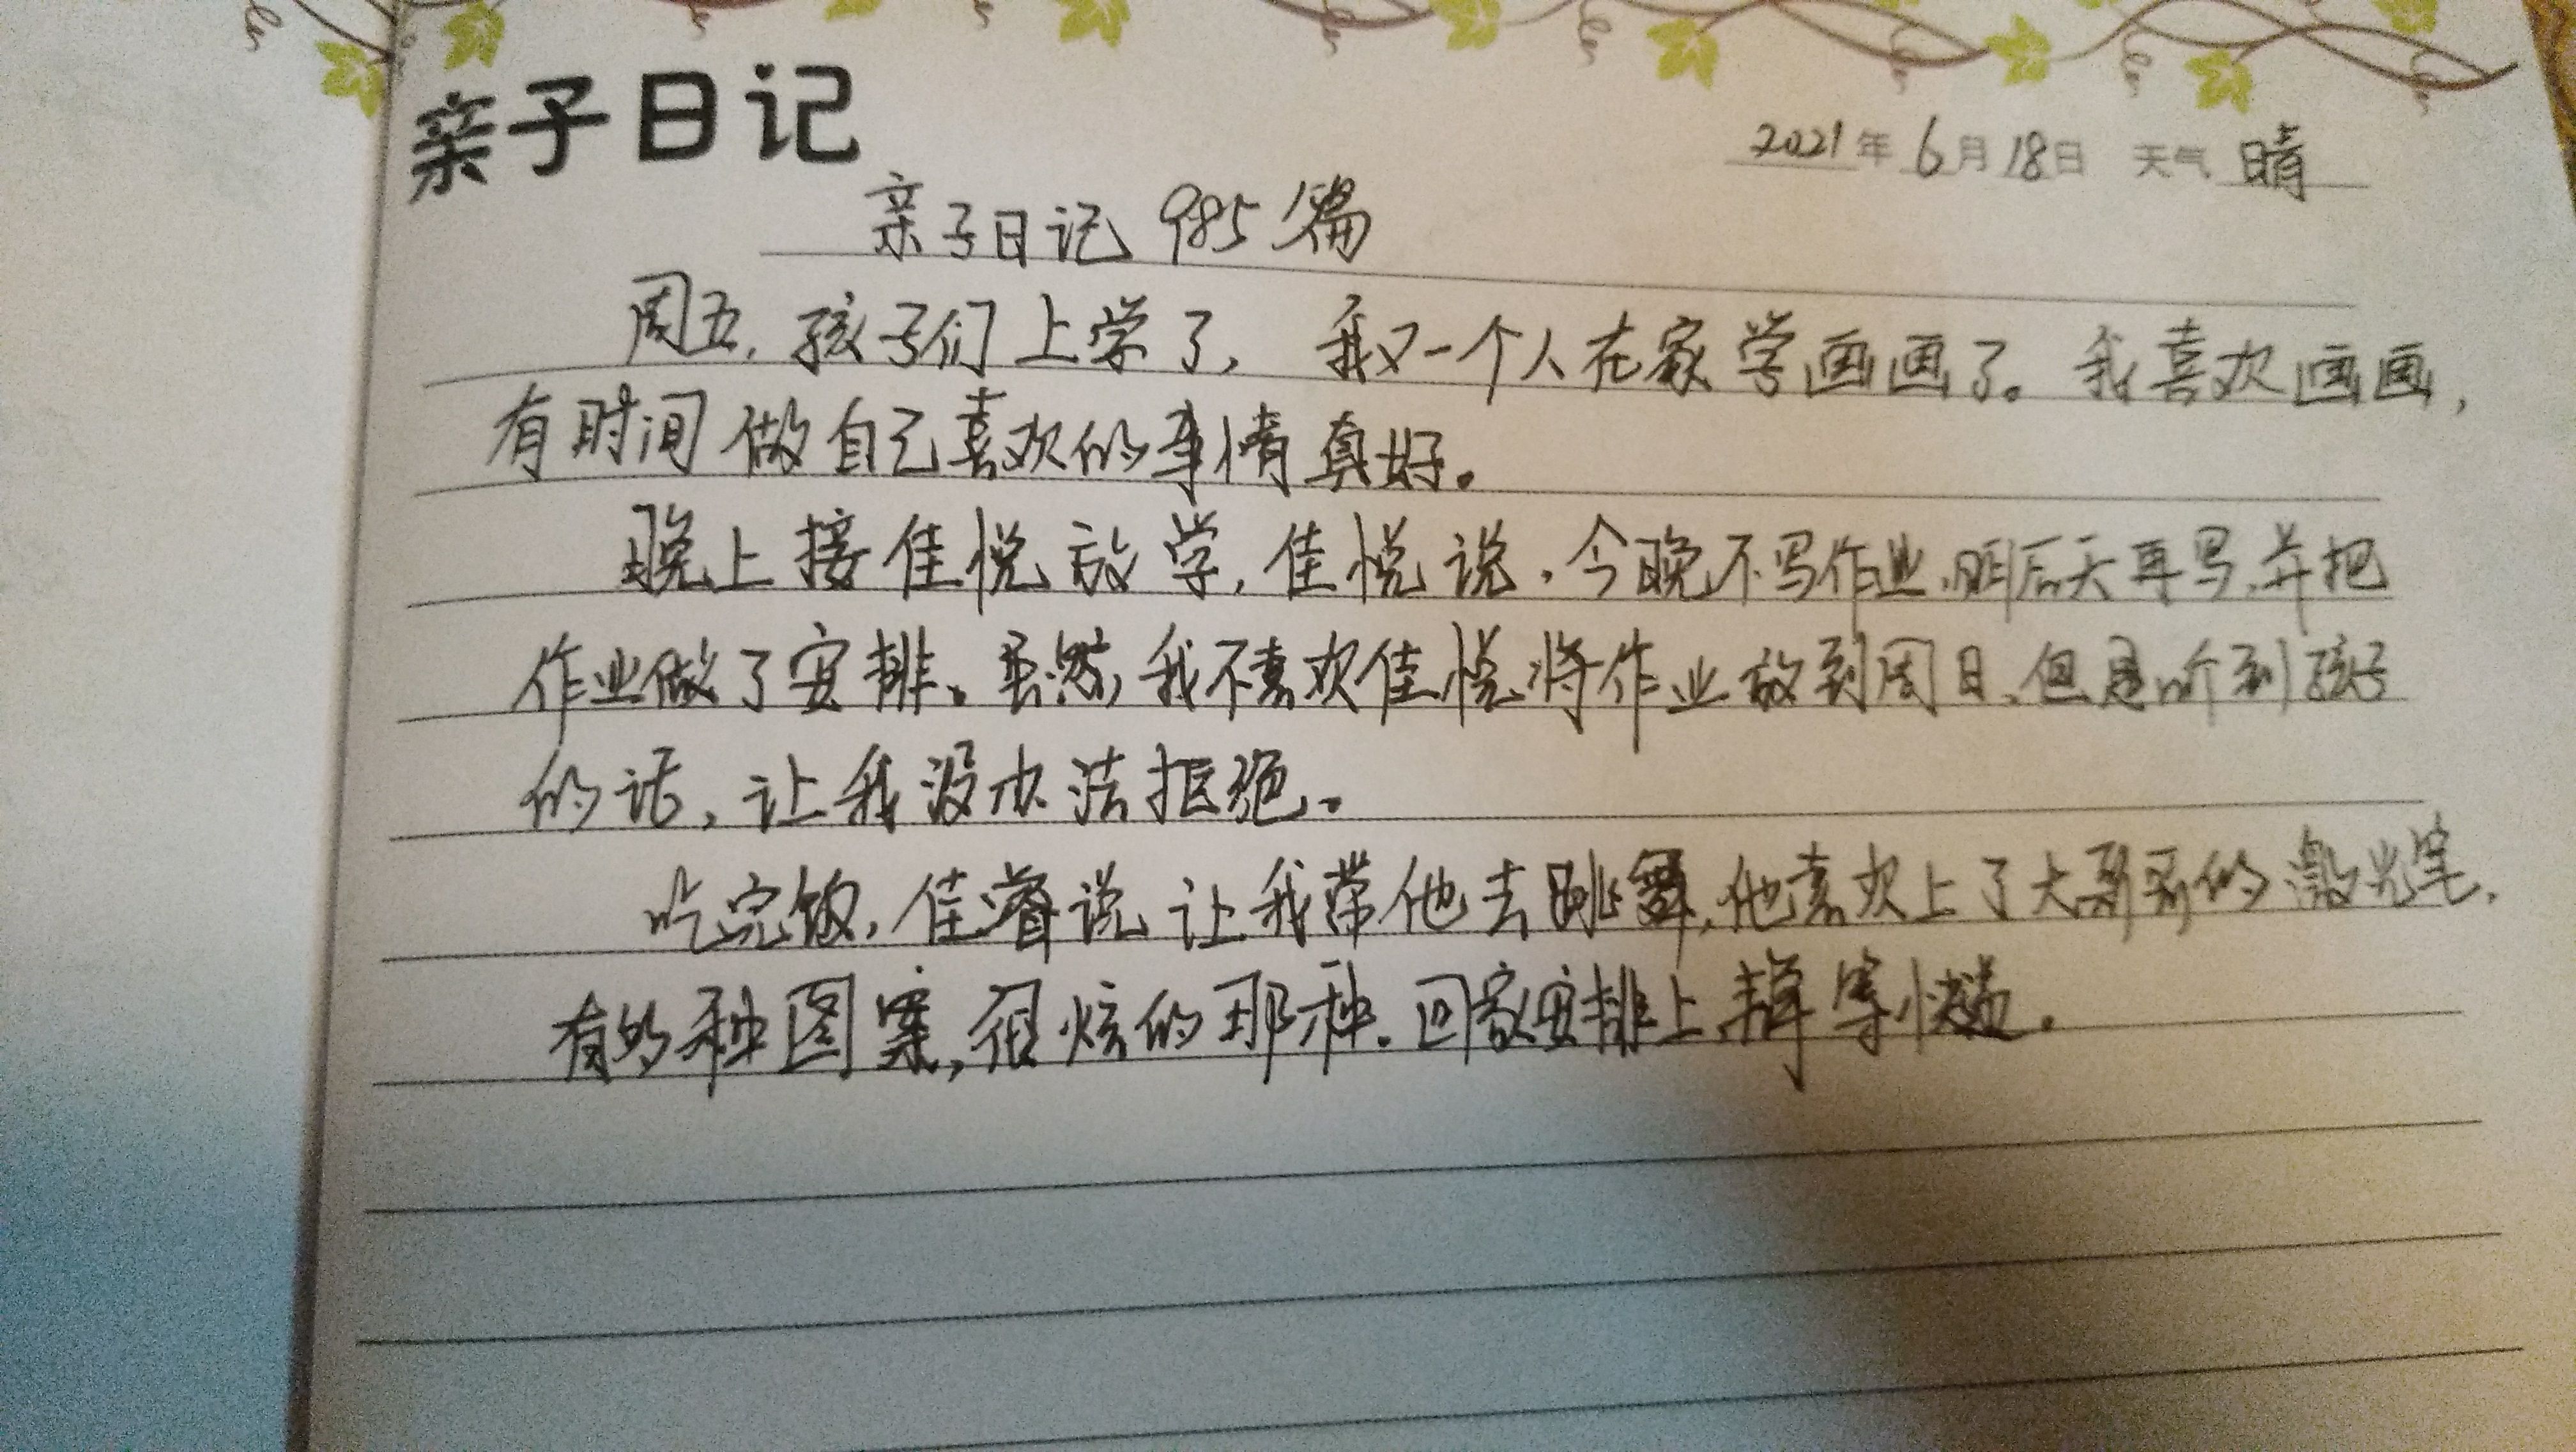 亲子日记
2021年6月18日 天气 晴
亲子日记985篇
周五,孩子们上学了,我又一个人在家学画画了。我喜欢画画,
有时间做自己喜欢的事情真好。
晚上接佳悦放学,佳悦说,今晚不写作业,明后天再写,并把
作业做了安排。虽然,我不喜欢佳悦将作业放到周日,但是听到孩子
的话,让我没办法拒绝。
吃完饭,佳睿说让我带他去跳舞,他喜欢上了大哥哥的激光笔,
有多种图案,很炫的那种。回家安排上,静等快递。